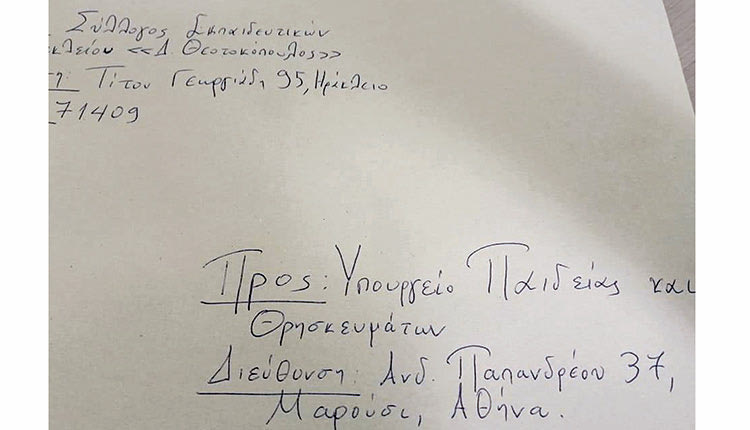 Σύλλογος Εκπαιδευτικών
κλείου «Δ. Θεοτοκόπουλος»
ση: Τίτου Γεωργιάδη 95, Ηράκλειο
71409
Προς: Υπουργείο Παιδείας και
Θρησκευμάτων
Διεύθυνση: Ανδ. Παπανδρέου 37,
Μαρούσι, Αθήνα.